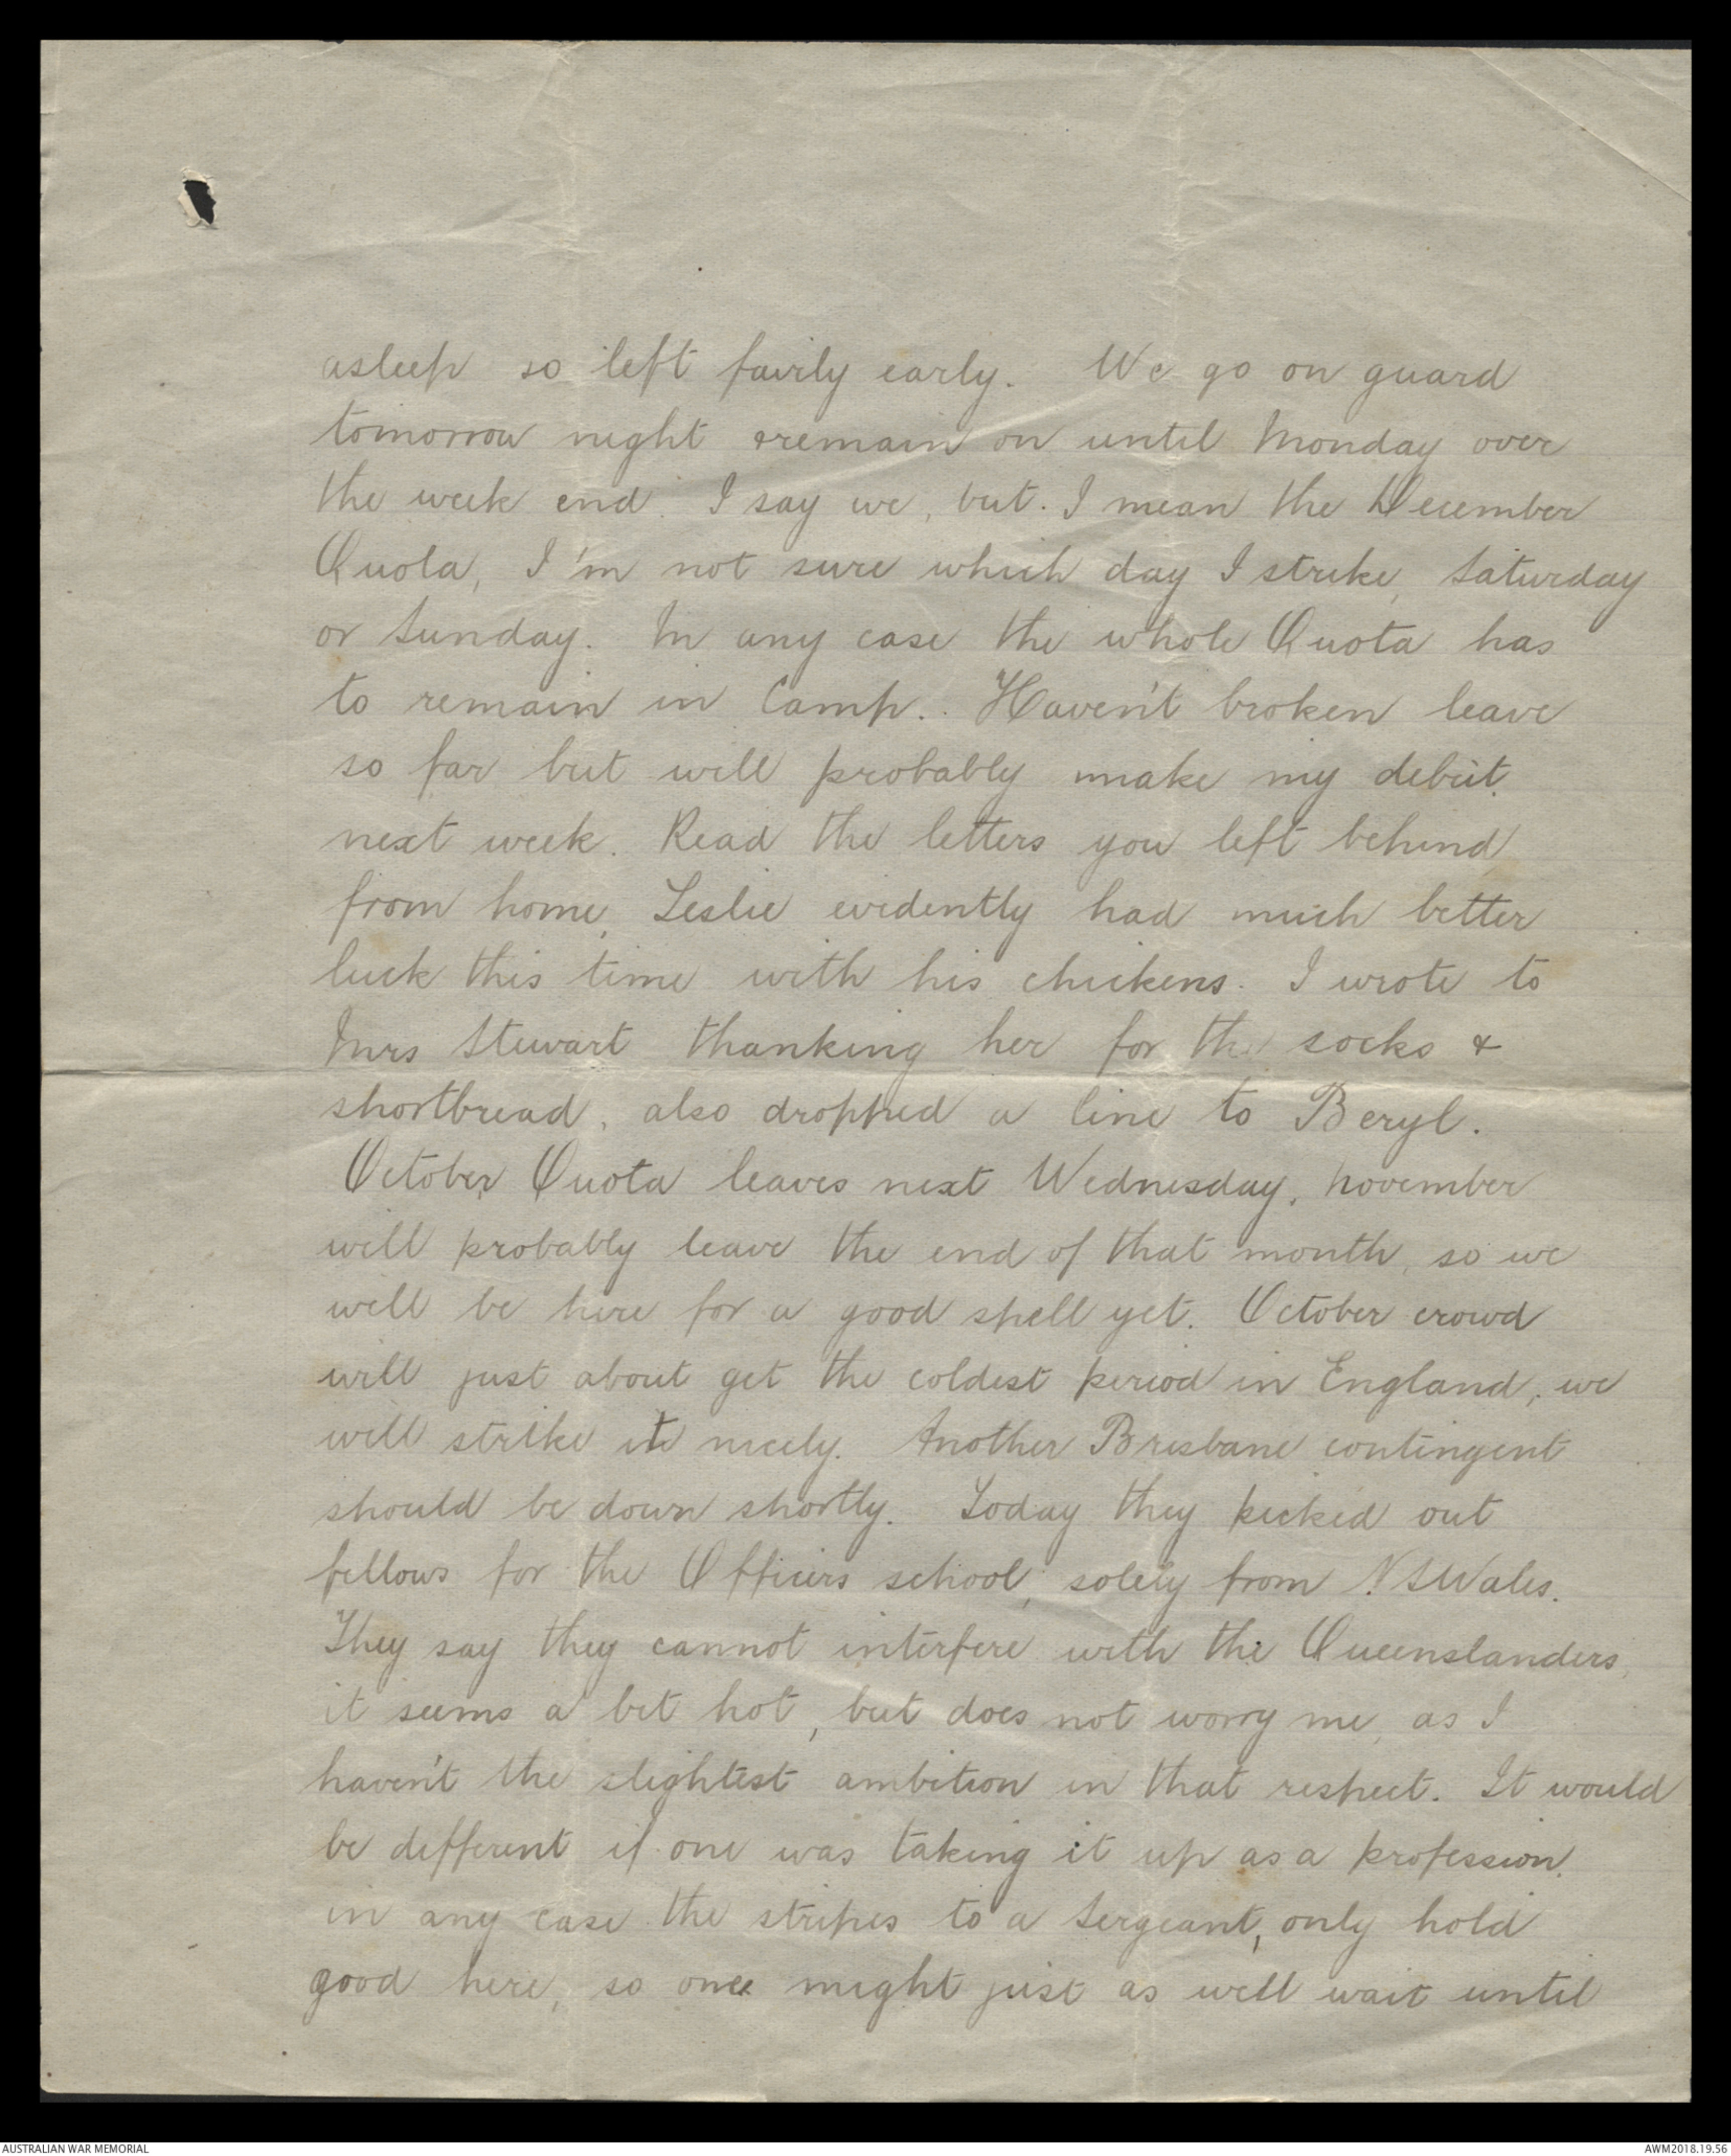 asleep so left fairly early. We go on guard
tomorrow night & remain on until Monday over
the week end. I say we, but I mean the December
Quota, I'm not sure which day I strike, Saturday
or Sunday. In any case the whole Quota has
to remain in Camp. Haven't broken leave
so far but will probably make my debut
next week. Read the letters you left behind
from home, Leslie evidently had much better
luck this time with his chickens. I wrote to
Mrs Stewart thanking her for the socks &
shortbread, also dropped a line to Beryl.
October Quota leaves next Wednesday, November
will probably leave the end of that month, so we
will be here for a good spell yet. October crowd
will just about get the coldest period in England, we
will strike it nicely. Another Brisbane contingent
should be down shortly. Today they picked out
fellows for the Officers school, solely from NSWales.
They say they cannot interfere with the Queenslanders,
it seems a bit hot, but does not worry me, as I
haven't the slightest ambition in that respect. It would
be different if one was taking it up as a profession,
in any case the stripes to a Sergeant, only hold
good here, so one might just as well wait until
AUSTRALIAN WAR MEMORIAL
AWM2018.19.56